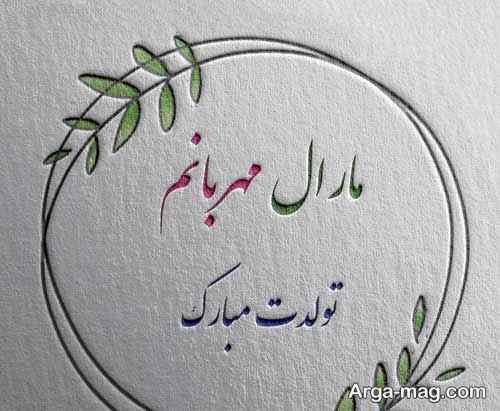 مارال مهربانم
تولدت مبارک
Arga-mag.com